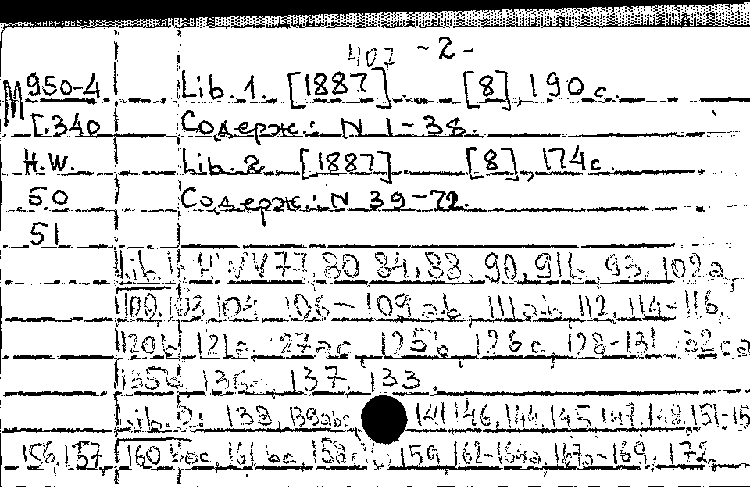 407 -2-
M 950-4 Lib. 1. [1887] [8], 190 с.
Г.340 Содерж.: N 1-38.
H.W. Lib. 2 [1887] [8], 174 с.
50 Содерж.: N 39-72.
51
Lib. 1: H W 77, 80, 84, 88, 90, 91b, 93, 102a,
100, 103, 104, 106-109ab, 111ab, 112, 114-116,
120b, 121a, 127ac, 125b, 126c, 128-131,
136, 137, 133.
Lib. 2: 138, 139abc, 141, 146, 144, 145, 147, 148, 151-15
156, 157, 160, 161 bc, 159, 162-164a, 167a-169, 172.